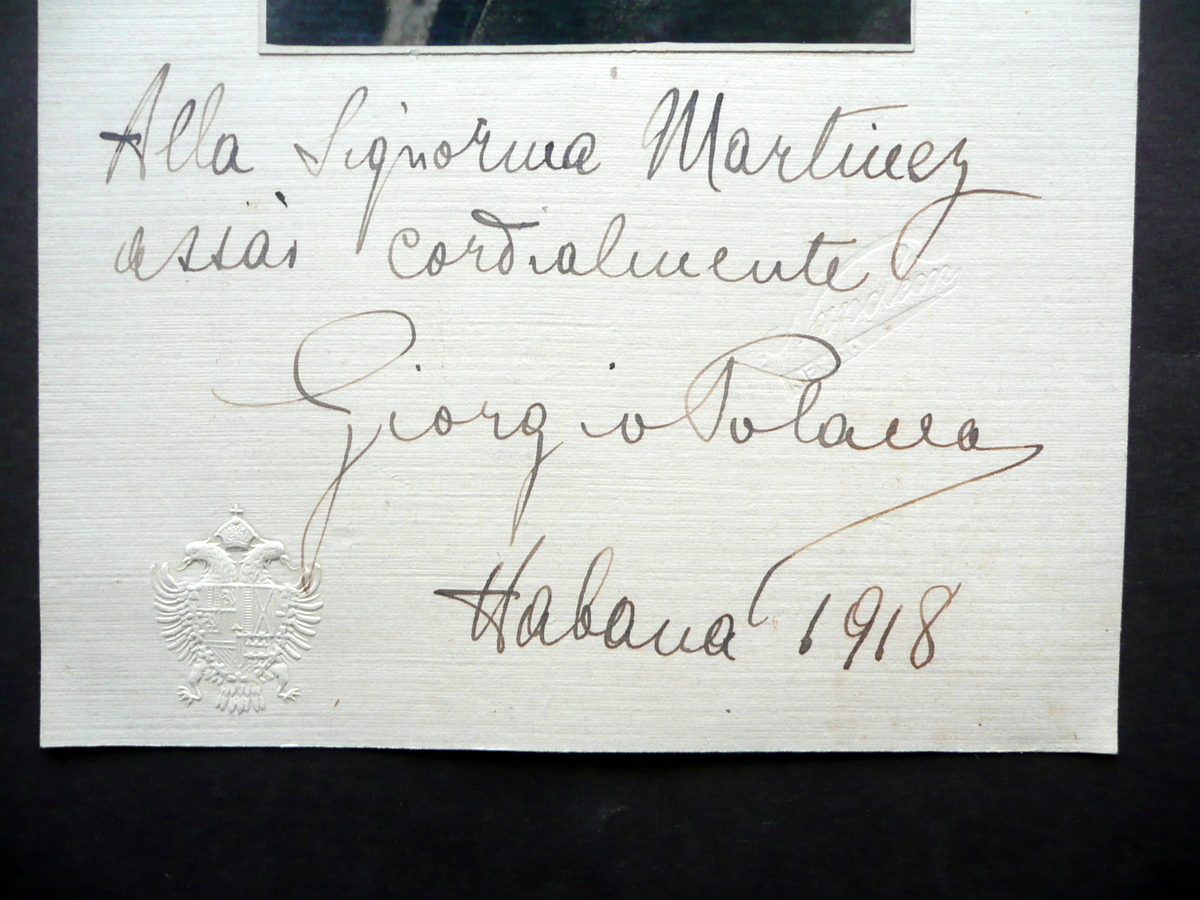 Alla Signorina Martinez
assai cordialmente
Giorgio Polacco
Habana 1918